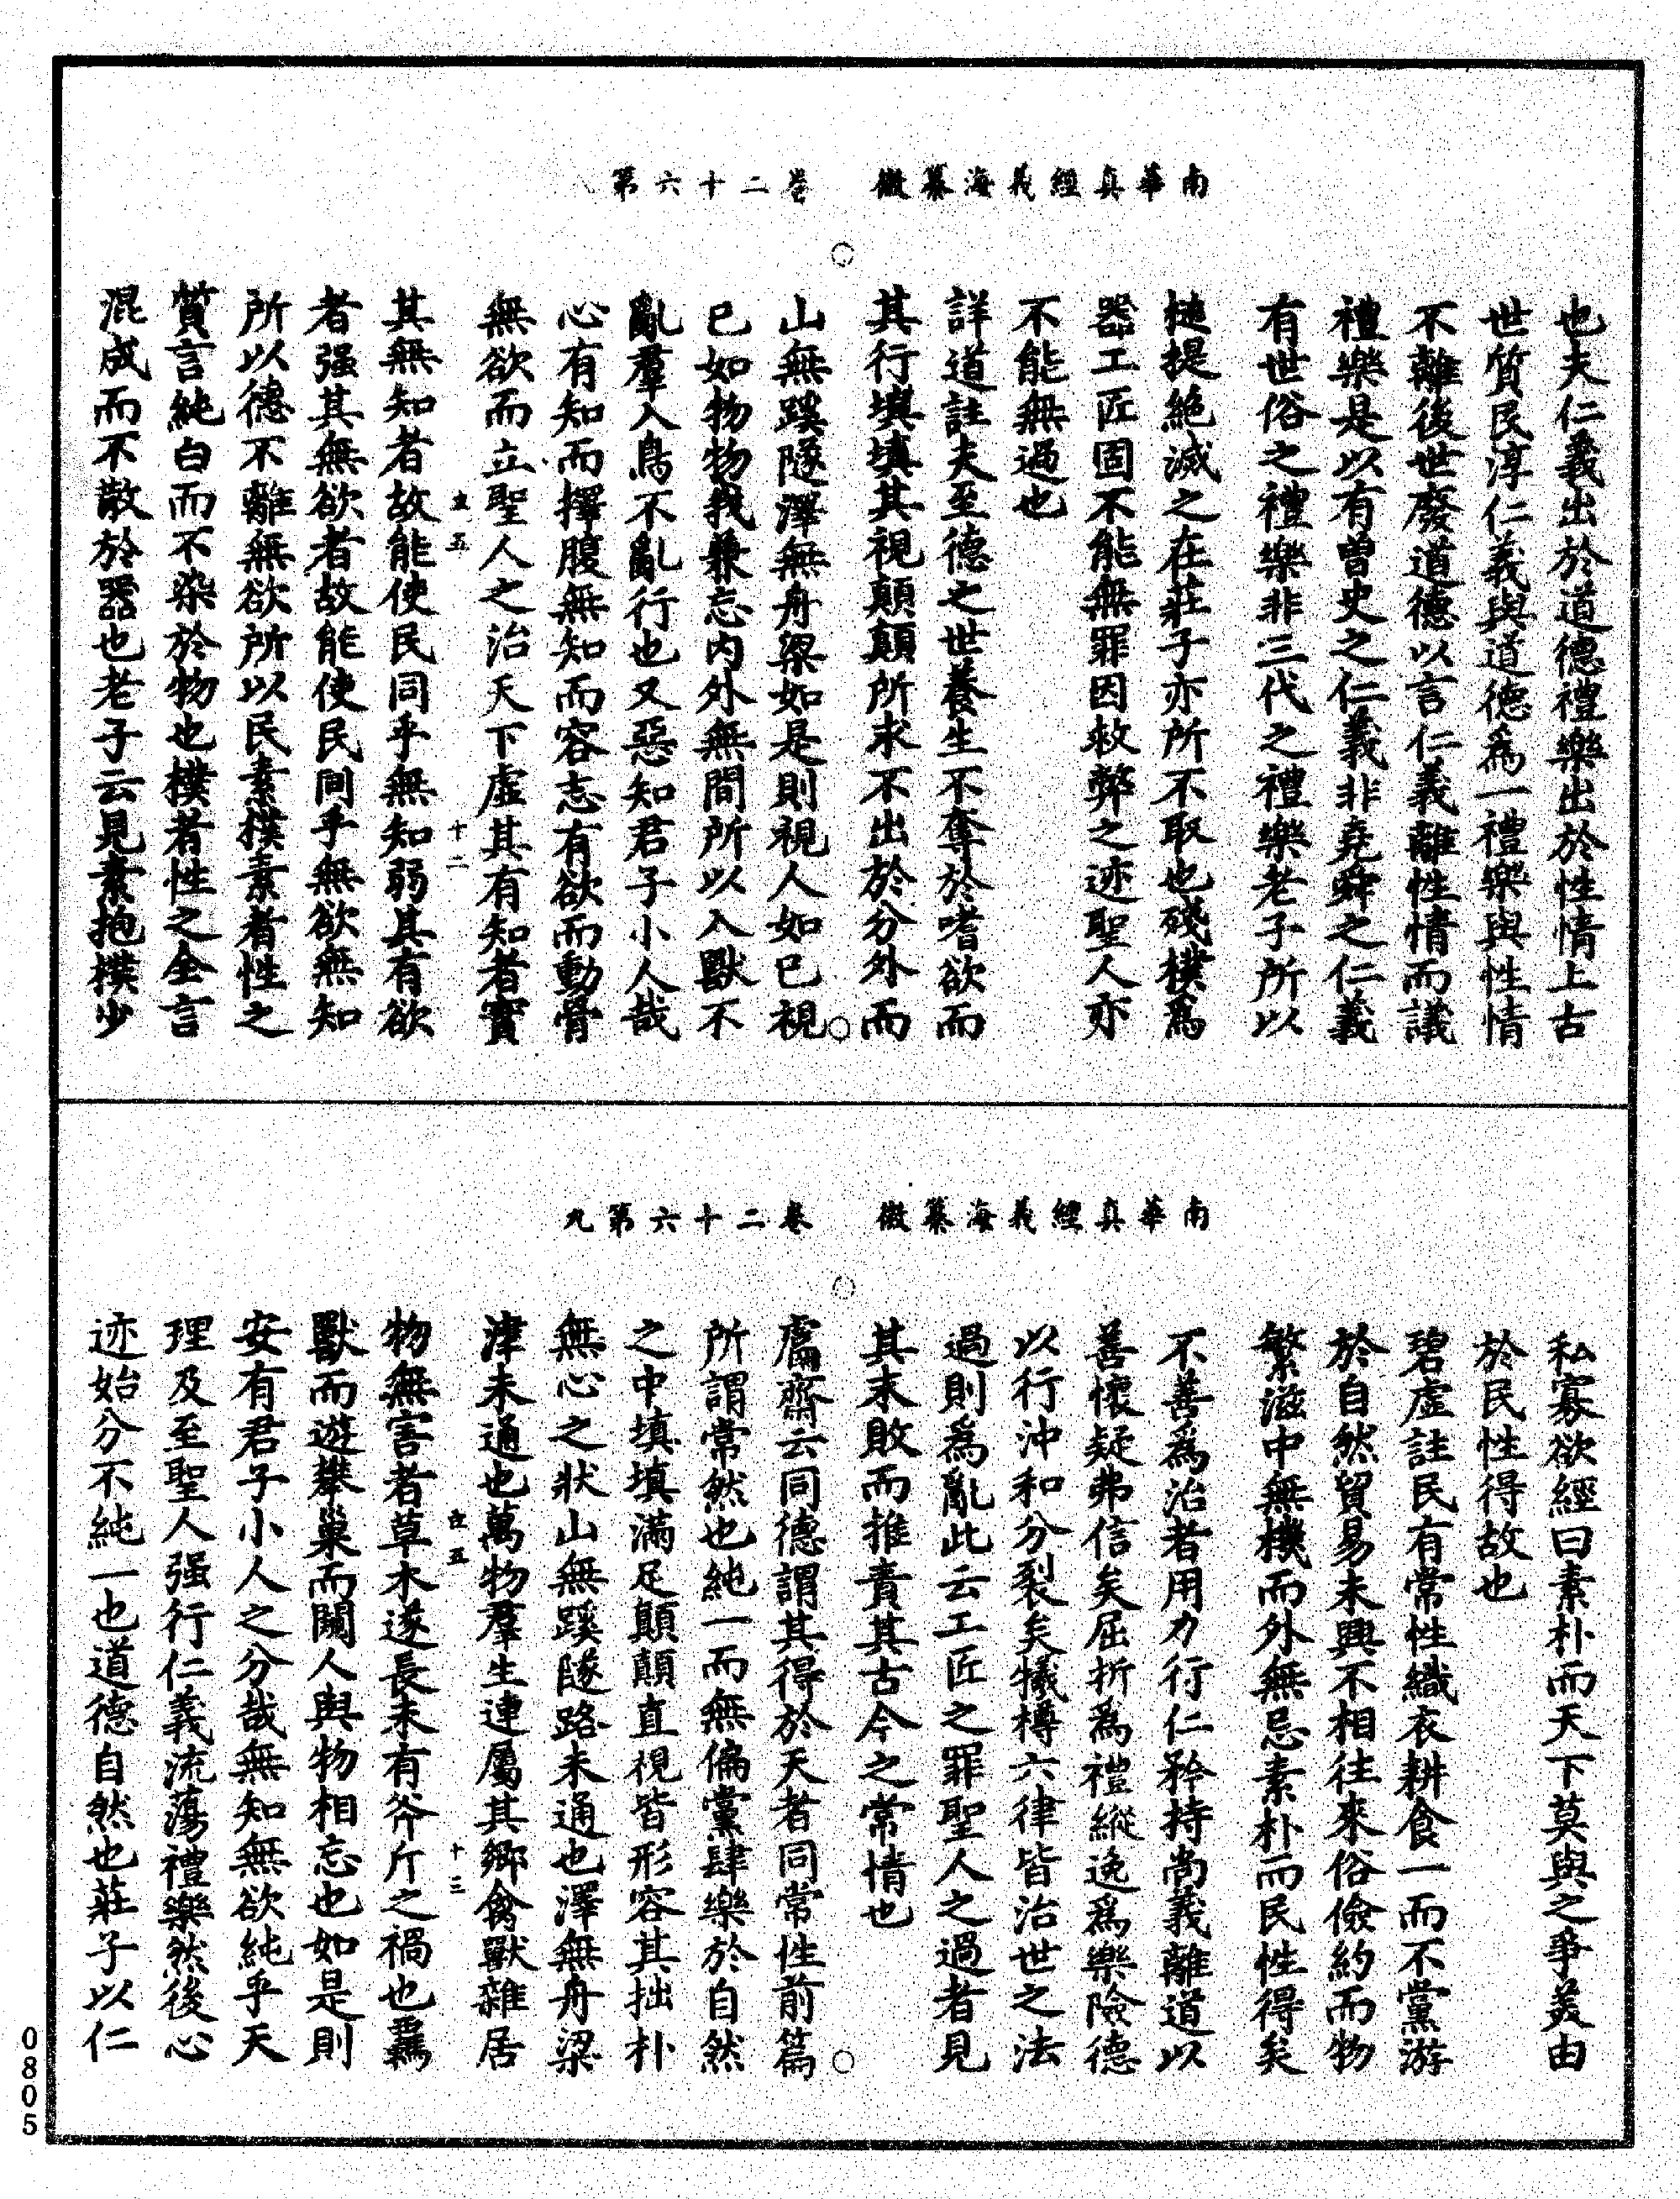 南華真經義海纂微　卷二十六第
也夫仁義出於道德禮樂出於性情上古
世質民淳仁義與道德爲一禮樂與性情
不離後世廢道德以言仁義離性情而議
禮樂是以有曾史之仁義非堯舜之仁義
有世俗之禮樂非三代之禮樂老子所以
槌提絶滅之在莊子亦所不取也殘樸爲
器工匠固不能無罪因救弊之迹聖人亦
不能無過也
詳道註夫至德之世養生不奪於嗜欲而
其行填填其視顛顛所求不出於分外而
山無蹊隧澤無舟梁如是則視人如已視
已如物物我兼忘内外無間所以入獸不
亂羣入鳥不亂行也又惡知君子小人哉
心有知而擇腹無知而容志有欲而動骨
無欲而立聖人之治天下虛其有知者實
五
十二
其無知者故能使民同乎無知弱其有欲
者强其無欲者故能使民同乎無欲無知
所以德不離無欲所以民素樸素者性之
質言純白而不染於物也樸者性之全言
混成而不散於器也老子云見素抱樸少
南華真經義海纂微　卷二十六第九
私寡欲經曰素朴而天下莫與之爭美由
於民性得故也
碧虛註民有常性織衣耕食一而不黨游
於自然貿易未興不相往來俗儉約而物
繁滋中無機而外無忌素朴而民性得矣
不善爲治者用力行仁矜持尚義離道以
善懷疑弗信矣屈折爲禮縱逸爲樂險德
以行沖和分裂矣犧樽六律皆治世之法
過則爲亂此云工匠之罪聖人之過者見
其末敗而推責其古今之常情也
鬳齋云同德謂其得於天者同常性前篇
所謂常然也純一而無偏黨肆樂於自然
之中填填滿足顛顛直視皆形容其拙朴
無心之狀山無蹊隧路未通也澤無舟梁
津未通也萬物羣生連屬其鄉禽獸雜居
五
十三
物無害者草木遂長未有斧斤之禍也羈
獸而遊攀巢而闚人與物相忘也如是則
安有君子小人之分哉無知無欲純乎天
理及至聖人强行仁義流蕩禮樂然後心
迹始分不純一也道德自然也莊子以仁
0805